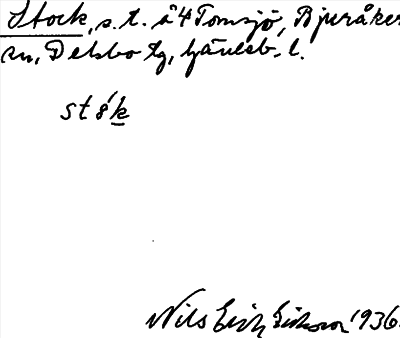 Stock, s. t. å 4 Tomsjö, Bjuråker
sn, Delsbo tg, Gävleb. l.
stók
Nils Erik Eriksson 1936.